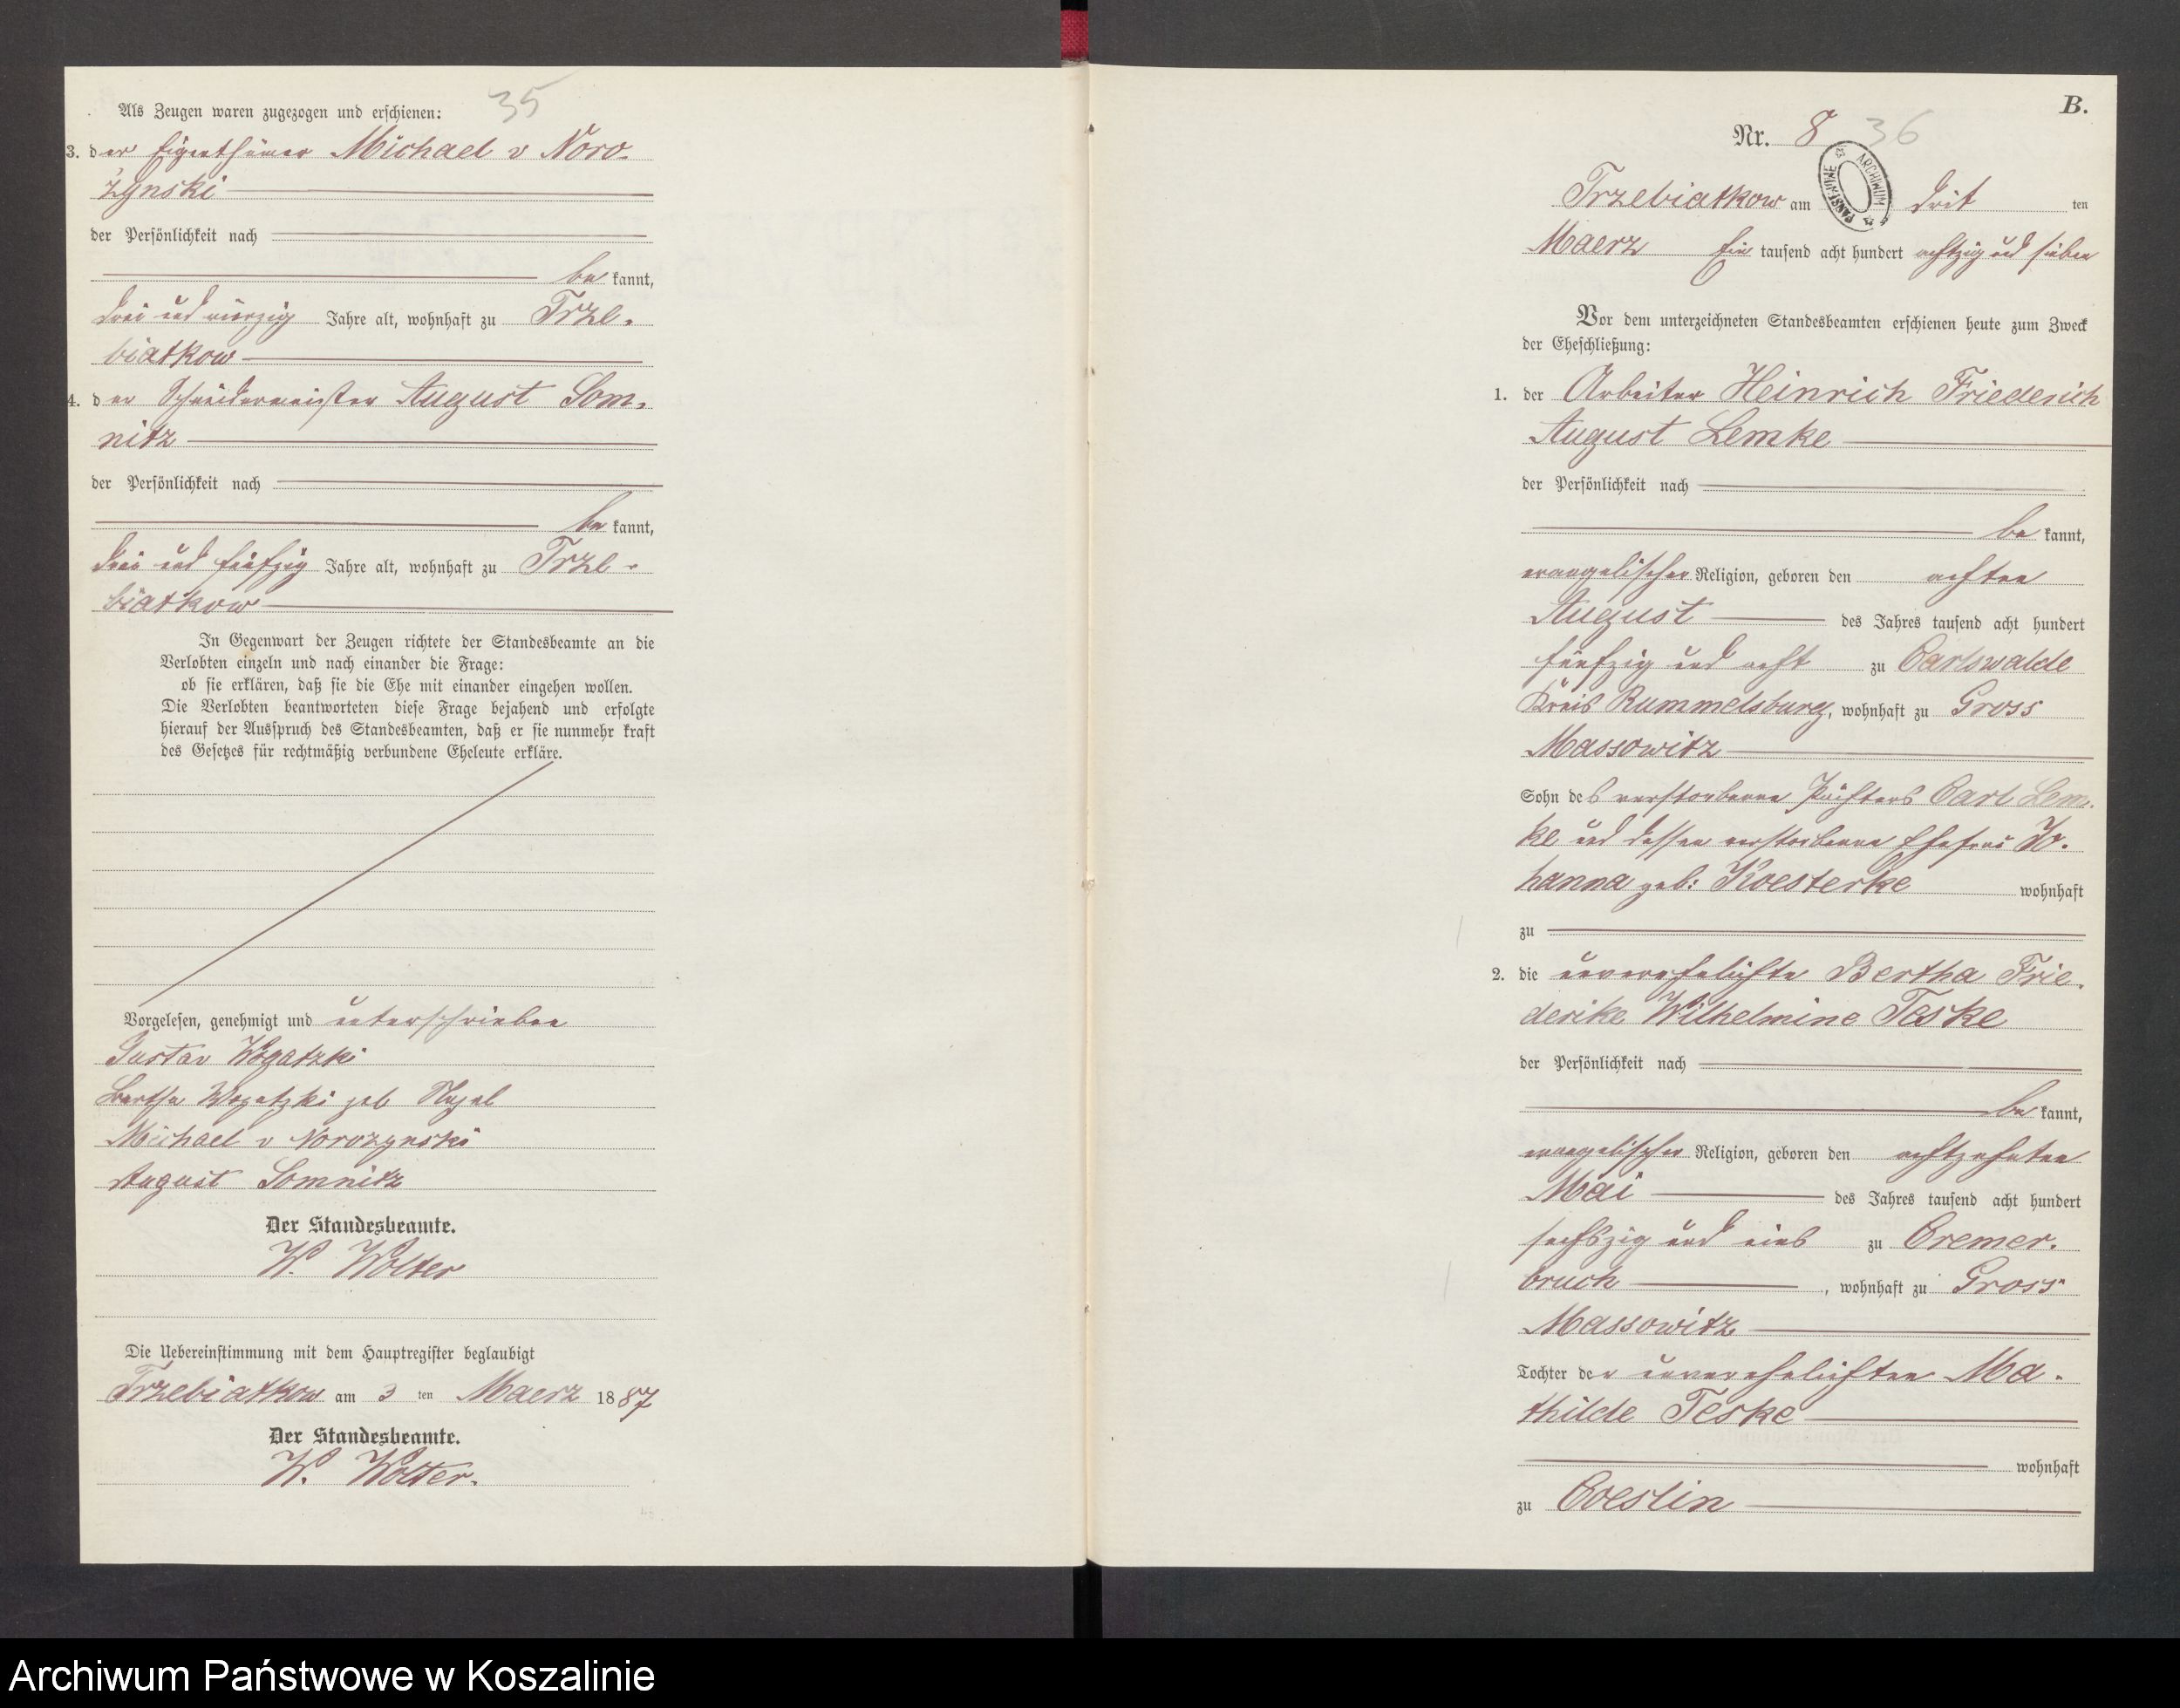 35
Als Zeugen waren zugezogen und erschienen:
3. der Eigenthümer Michael v Noro-
zynski
der Persönlichkeit nach
be kannt,
drei und vierzig Jahre alt, wohnhaft zu Trze-
biatkow
4. der Schneidermeister August Som-
nitz
der Persönlichkeit nach
be kannt,
drei und fünfzig Jahre alt, wohnhaft zu Trze-
biatkow
In Gegenwart der Zeugen richtete der Standesbeamte an die
Verlobten einzeln und nach einander die Frage:
ob sie erklären, daß sie die Ehe mit einander eingehen wollen.
Die Verlobten beantworteten diese Frage bejahend und erfolgte
hierauf der Ausspruch des Standesbeamten, daß er sie nunmehr kraft
des Gesetzes für rechtmäßig verbundene Eheleute erkläre.
Vorgelesen, genehmigt und unterschrieben
Gustav Wogatzki
Bertha Wogatzki geb
Michael v Norozynski
August Somnitz
Der Standesbeamte.
W. Wolter
Die Uebereinstimmung mit dem Hauptregister beglaubigt
Trzebiatkow am 3 ten Maerz 1887
Der Standesbeamte.
W. Wolter.
B.
Nr. 8 36
ARCHIWUM PAŃSTWOWE
Trzebiatkow am drit ten
Maerz Ein tausend acht hundert achtzig und sieben
Vor dem unterzeichneten Standesbeamten erschienen heute zum Zweck
der Eheschließung:
1. der Arbeiter Heinrich Friederich
August Lemke
der Persönlichkeit nach
be kannt,
evangelischer Religion, geboren den achten
August des Jahres tausend acht hundert
fünfzig und acht zu Carlswalde
Kreis Rummelsburg, wohnhaft zu Gross
Massowitz
Sohn des verstorbenen Pächters Carl Lem-
ke und dessen verstorbene Ehefrau Jo-
hanna geb: Koesterke wohnhaft
zu
2. die unverehelichte Bertha Frie-
derike Wilhelmine Teske
der Persönlichkeit nach
be kannt,
evangelischer Religion, geboren den achtzehnten
Mai des Jahres tausend acht hundert
sechszig und eins zu Cremer-
bruch, wohnhaft zu Gross
Massowitz
Tochter der unverehelichten Ma-
thilde Teske
wohnhaft
zu Coeslin
Archiwum Państwowe w Koszalinie